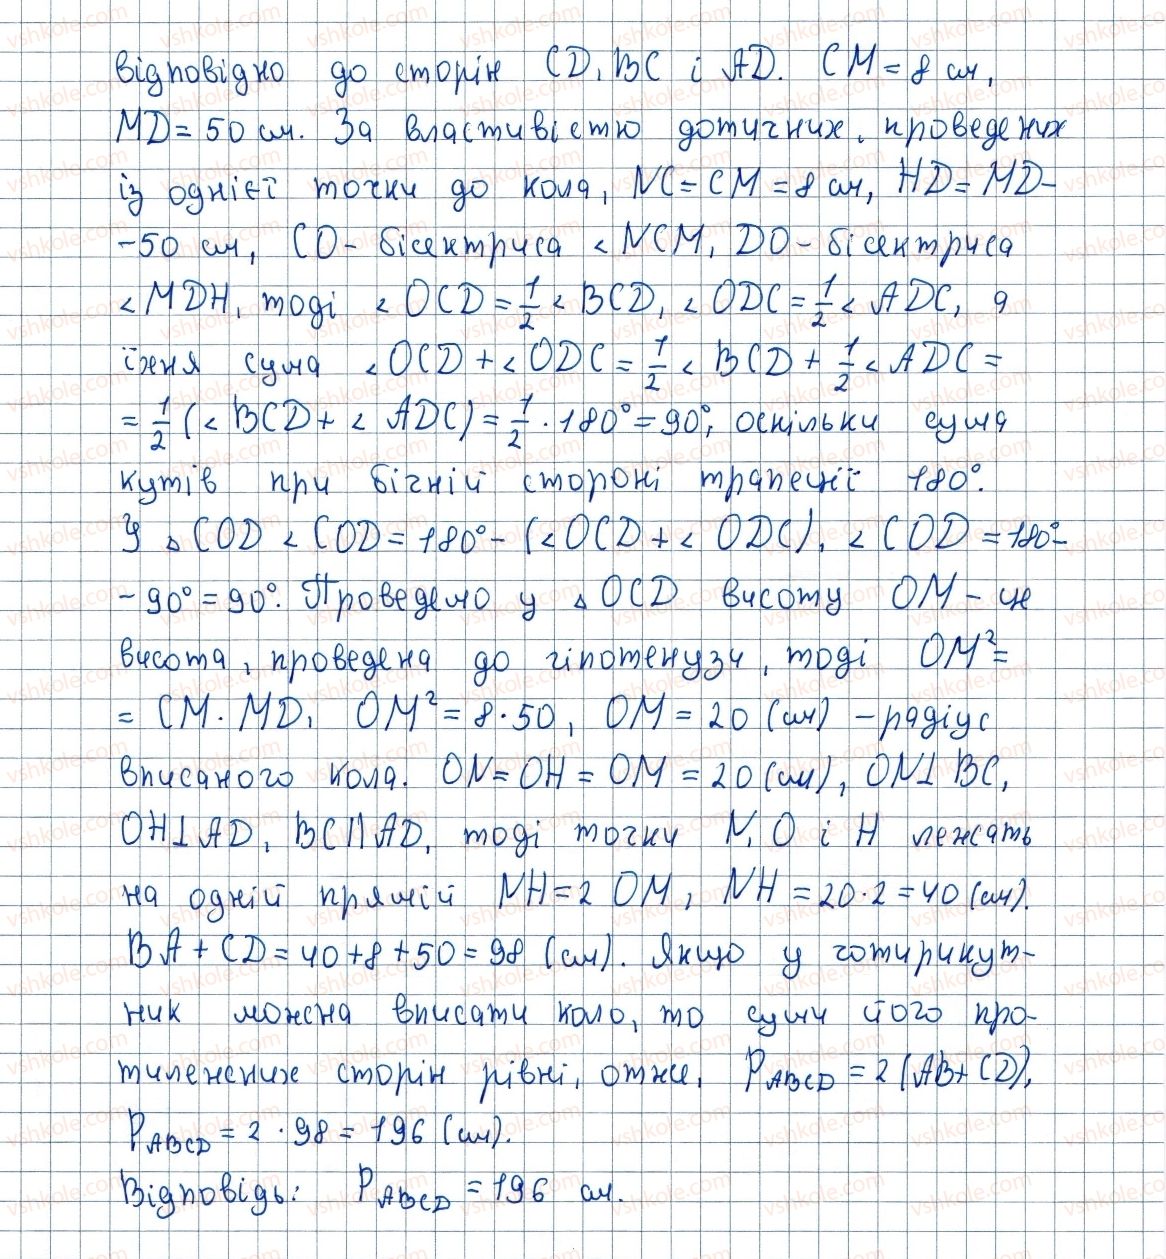 відповідно до сторін CD, BC і AD. CM = 8 см,
MD = 50 см. За властивістю дотичних, проведених
із однієї точки до кола, NC = CM = 8 см, HD = MD -
- 50 см, CO - бісектриса < NCM, DO - бісектриса
< MDH, тоді < OCD = 1/2 < BCD, < ODC = 1/2 < ADC, а
їхня сума < OCD + < ODC = 1/2 < BCD + 1/2 < ADC =
= 1/2 (< BCD + < ADC) = 1/2 · 180° = 90°, оскільки сума
кутів при бічній стороні трапеції 180°.
У △ COD < COD = 180° - (< OCD + < ODC), < COD = 180° -
- 90° = 90°. Проведемо у △ OCD висоту OM - це
висота, проведена до гіпотенузи, тоді OM² =
= CM · MD, OM² = 8 · 50, OM = 20 (см) - радіус
вписаного кола. ON = OH = OM = 20 (см), ON ⊥ BC,
OH ⊥ AD, BC || AD, тоді точки N, O і H лежать
на одній прямій NH = 2 OM, NH = 20 · 2 = 40 (см).
BA + CD = 40 + 8 + 50 = 98 (см). Якщо у чотирикут-
ник можна вписати коло, то суми його про-
тилежних сторін рівні, отже, P ABCD = 2 (AB + CD),
P ABCD = 2 · 98 = 196 (см).
Відповідь: P ABCD = 196 см.